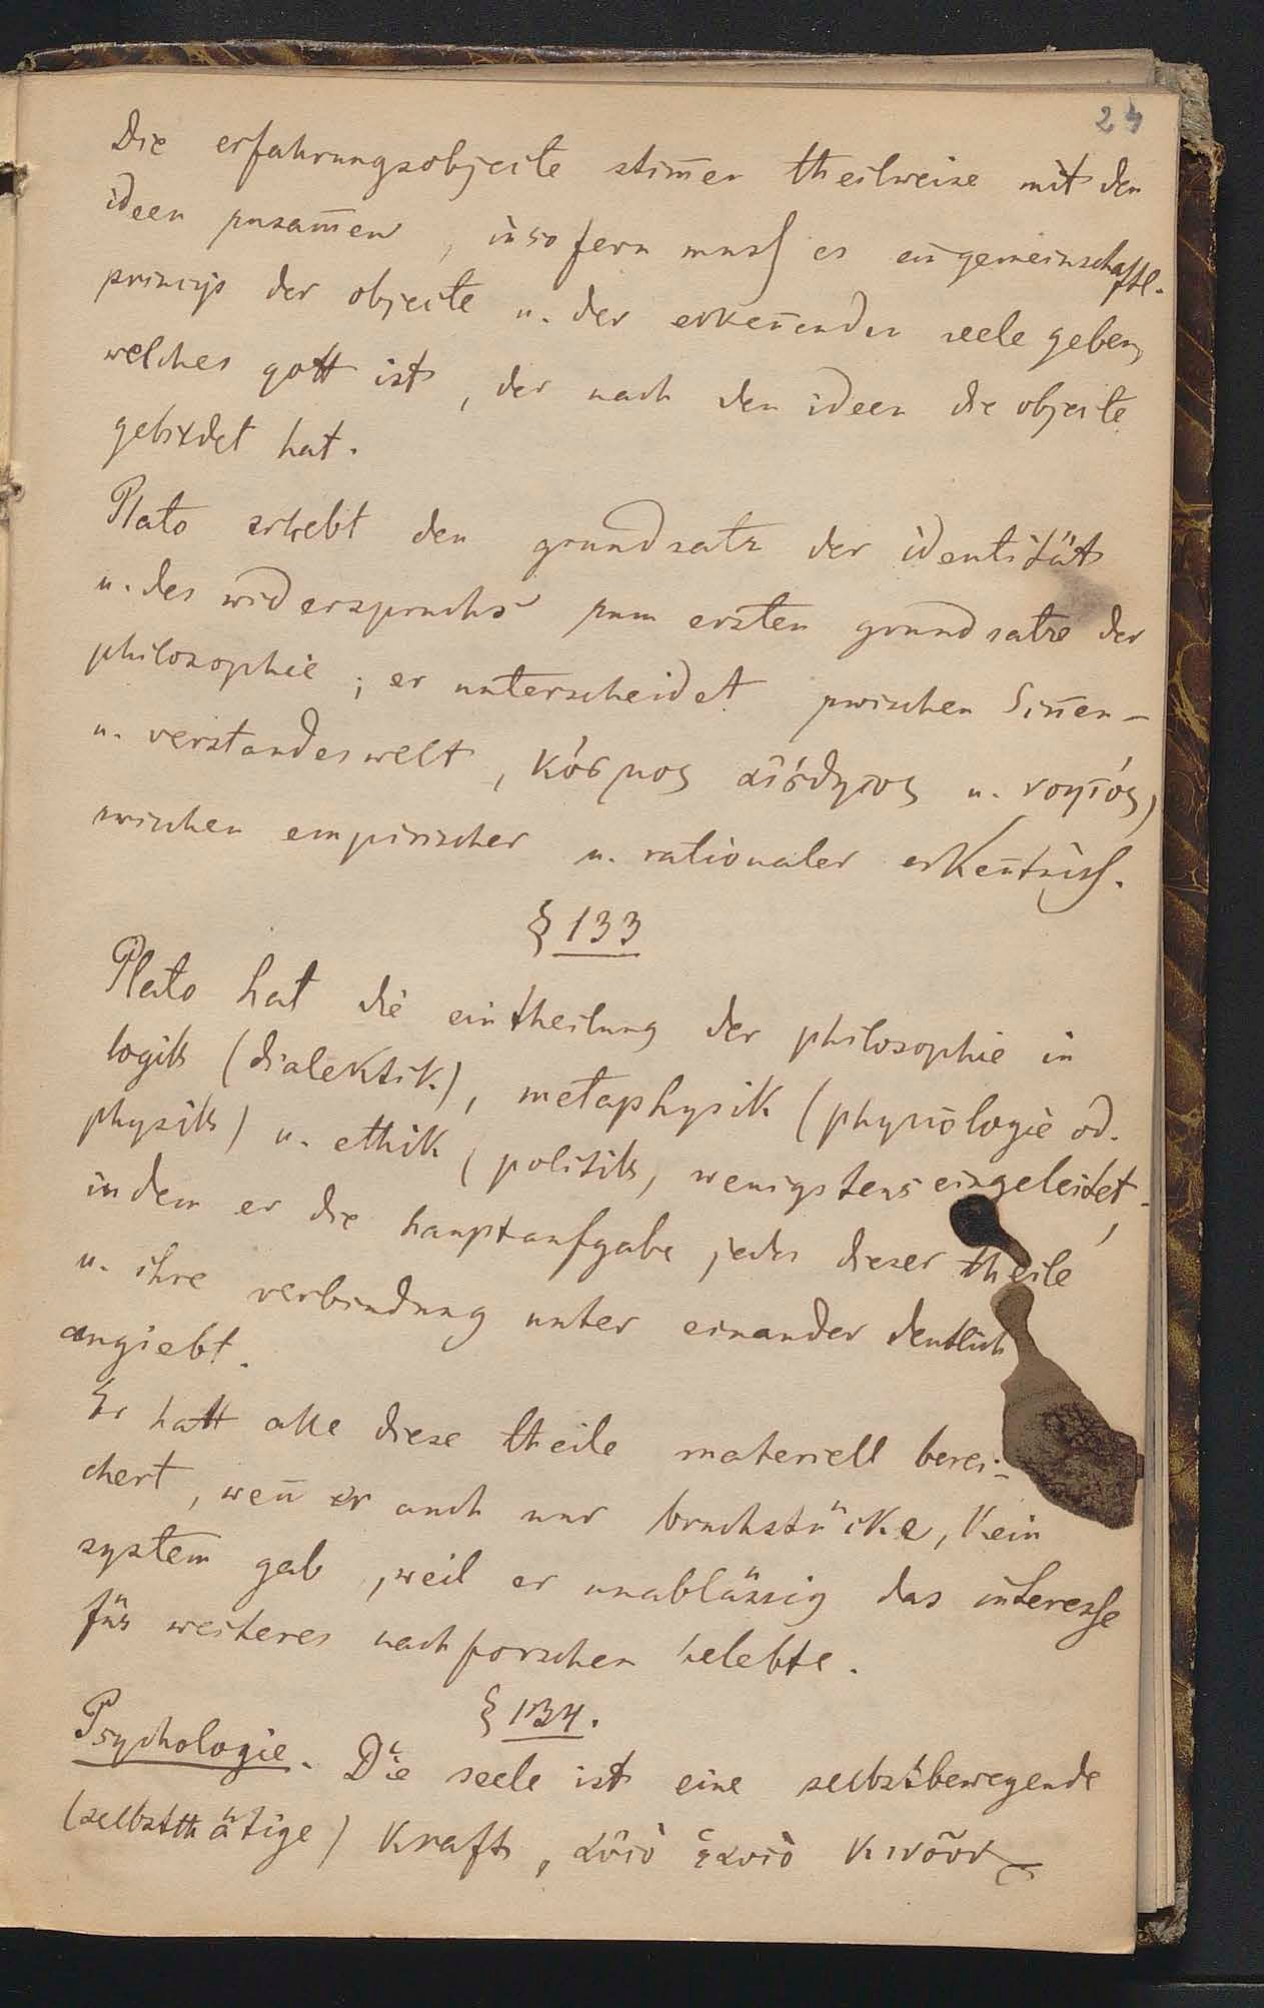 24
Die erfahrungsobjecte stim̄en theilweise mit den
ideen zusam̄en, insofern muss es ein gemeinschaftl.
princip der objecte u. der erken̄enden seele geben,
welches gott ist, der nach den ideen die objecte
gebildet hat.
Plato erhebt den grundsatz der identität
u. des widerspruchs zum ersten grundsatze der
philosophie; er unterscheidet zwischen Sin̄en-
u. verstandeswelt, κόσμος αἰσθητος u. νοητός,
zwischen empirischer u. rationaler erken̄tniss.
§ 133
Plato hat die eintheilung der philosophie in
logik (dialektik), metaphysik (physiologie od.
physik) u. ethik (politik, wenigstens eingeleitet,
indem er die hauptaufgabe jedes dieser theile
u. ihre verbindung unter einander deutlich
angiebt.
Er hatt alle diese theile materiell berei-
chert, wen̄ er auch nur bruchstücke, kein
system gab, weil er unablässig das interesse
für weiteres nachforschen belebte.
§ 134.
Psychologie. Die seele ist eine selbstbewegende
(selbstthätige) Kraft, αὐτὸ ἑαυτὸ κινοῦν